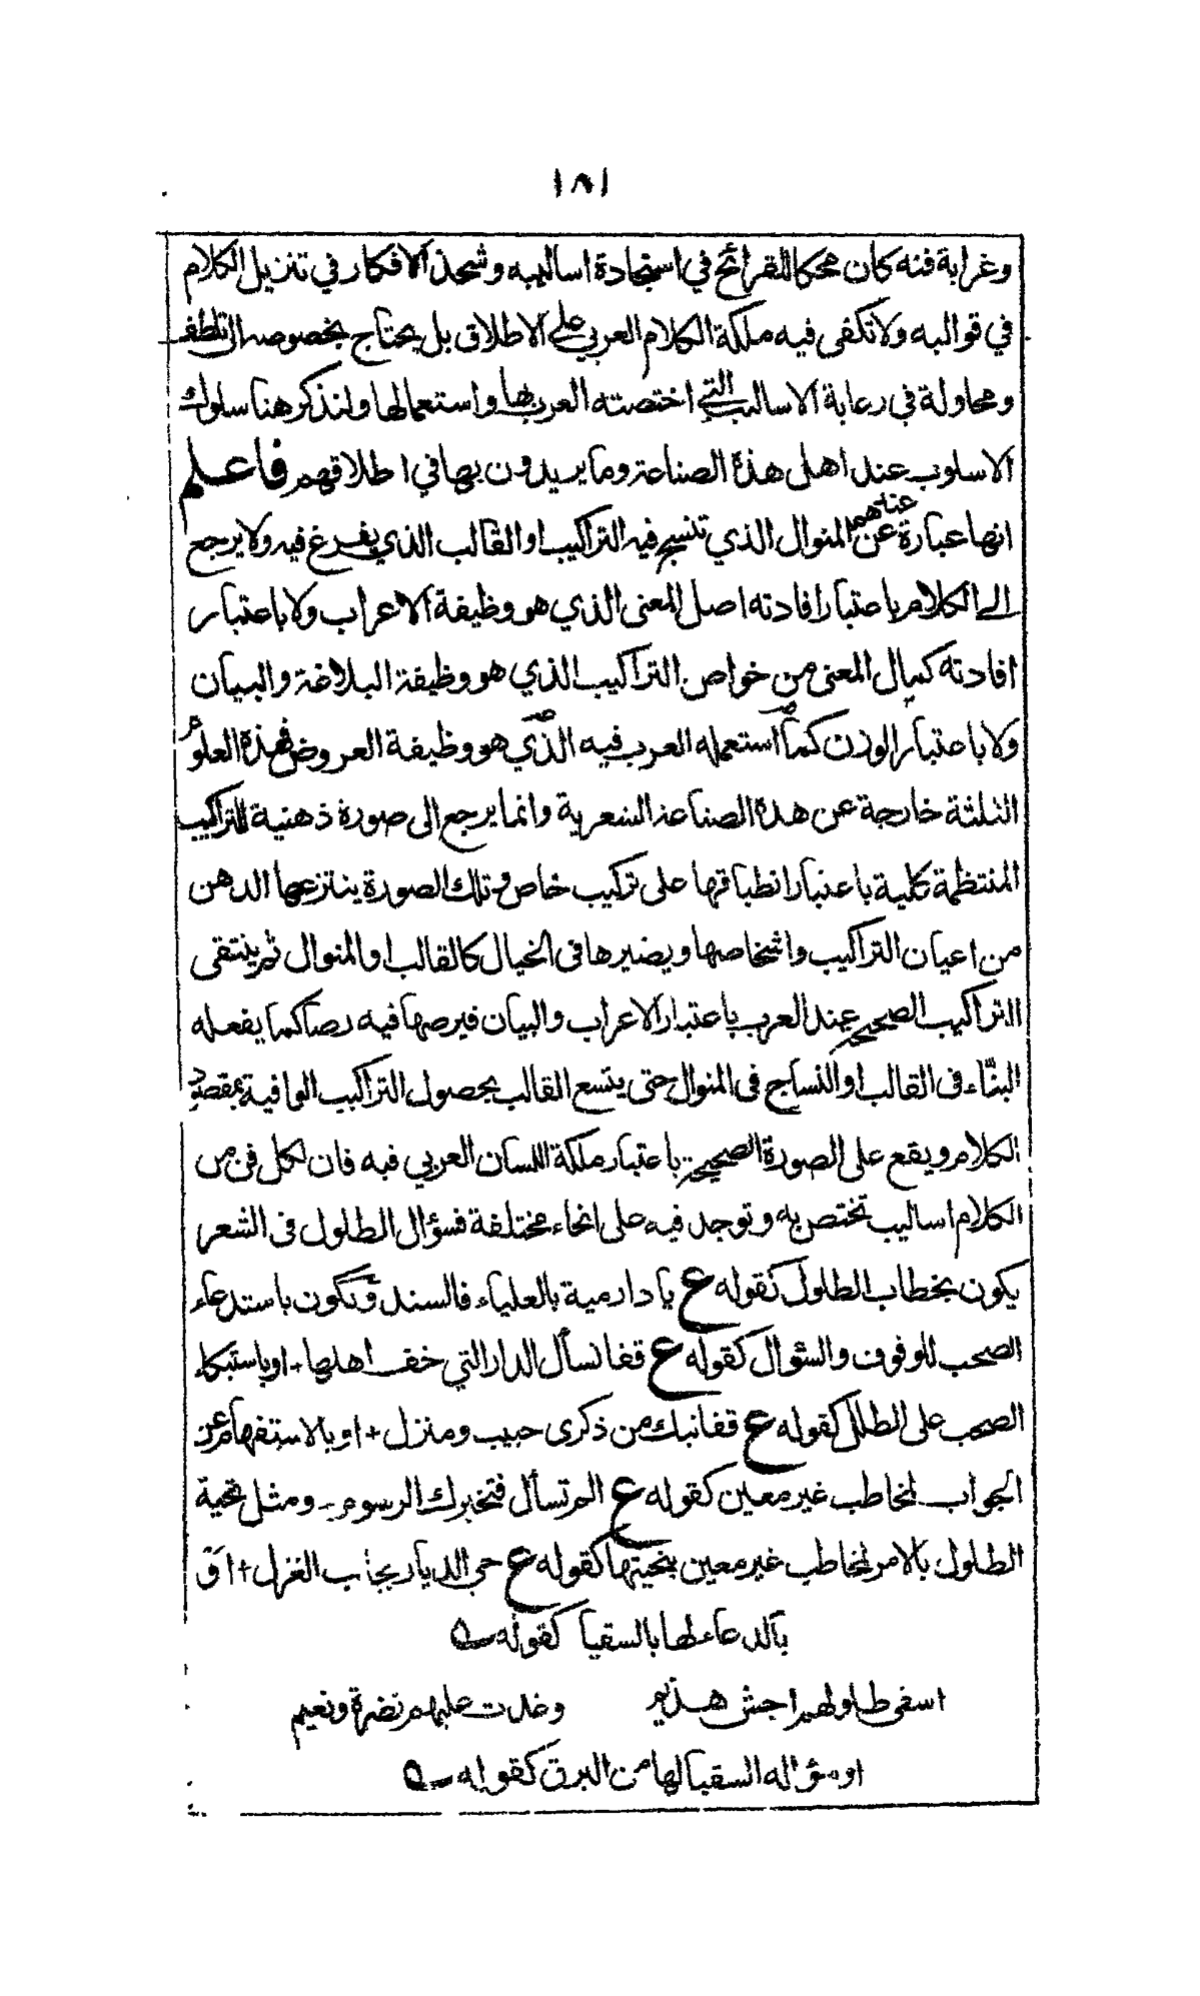 ١٨١
وغرابة فنه كان محكا للقرائح في استجادة اساليبه وشحذ الافكار في تنزيل الكلام
في قوالبه ولا تكفى فيه ملكة الكلام العربي على الاطلاق بل يحتاج بخصوصه الى تلطف
ومحاولة في رعاية الاساليب التي اختصته العرب بها واستعمالها ولنذكر هنا سلوك
الاسلوب عند اهل هذه الصناعة وما يريدون بها في اطلاقهم فاعلم
انها عبارة عندهم عن المنوال الذي تنسج فيه التراكيب او القالب الذي يفرغ فيه ولا يرجع
الى الكلام باعتبار افادته اصل المعنى الذي هو وظيفة الاعراب ولا باعتبار
افادته كمال المعنى من خواص التراكيب الذي هو وظيفة البلاغة والبيان
ولا باعتبار الوزن كما استعمله العرب فيه الذي هو وظيفة العروض فهذه العلوم
الثلثة خارجة عن هذه الصناعة الشعرية وانما يرجع الى صورة ذهنية للتراكيب
المنتظمة كلية باعتبار انطباقها على تركيب خاص وتلك الصورة ينتزعها الذهن
من اعيان التراكيب واشخاصها ويصيرها في الخيال كالقالب او المنوال ثم ينتقى
التراكيب الصحيحة عند العرب باعتبار الاعراب والبيان فيرصها فيه رصا كما يفعله
البنّاء في القالب او النساج في المنوال حتى يتسع القالب بحصول التراكيب الوافية بمقصود
الكلام ويقع على الصورة الصحيحة باعتبار ملكة اللسان العربي فيه فان لكل فن من
الكلام اساليب تختص به وتوجد فيه على انحاء مختلفة فسؤال الطلول في الشعر
يكون بخطاب الطلول كقوله ع يا دار مية بالعلياء فالسند وتكون باستدعاء
الصحب للوقوف والسؤال كقوله ع قفا نسأل الدار التي خف اهلها - او باستبكاء
الصحب على الطلل كقوله ع قفا نبك من ذكرى حبيب ومنزل + او بالاستفهام عن
الجواب لمخاطب غير معين كقوله ع الم تسأل فتخبرك الرسوم - ومثل تحية
الطلول بالامر لمخاطب غير معين بتحيتها كقوله ع حي الديار بجانب الغزل + او
بالدعاء لها بالسقيا كقوله
اسقى طلولهم اجش هذيم وغدت عليهم نضرة ونعيم
او سؤاله السقيا لها من البرق كقوله